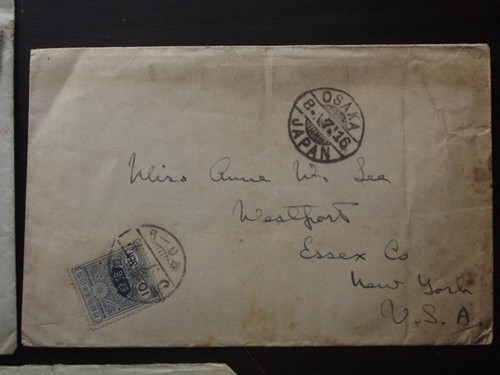 OSAKA
8.7.16
JAPAN
Miss Anne W. Lee
Westport
Essex Co
New York
U.S.A
10